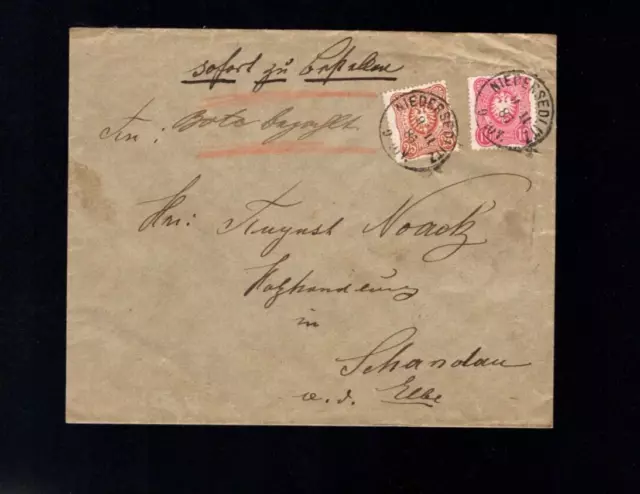 sofort zu bestellen
Frn: Bote bezahlt
NIEDERSEDLITZ
NIEDERSEDLITZ
Hrn: August Noack
Holzhandlung
in
Schandau
a. d. Elbe